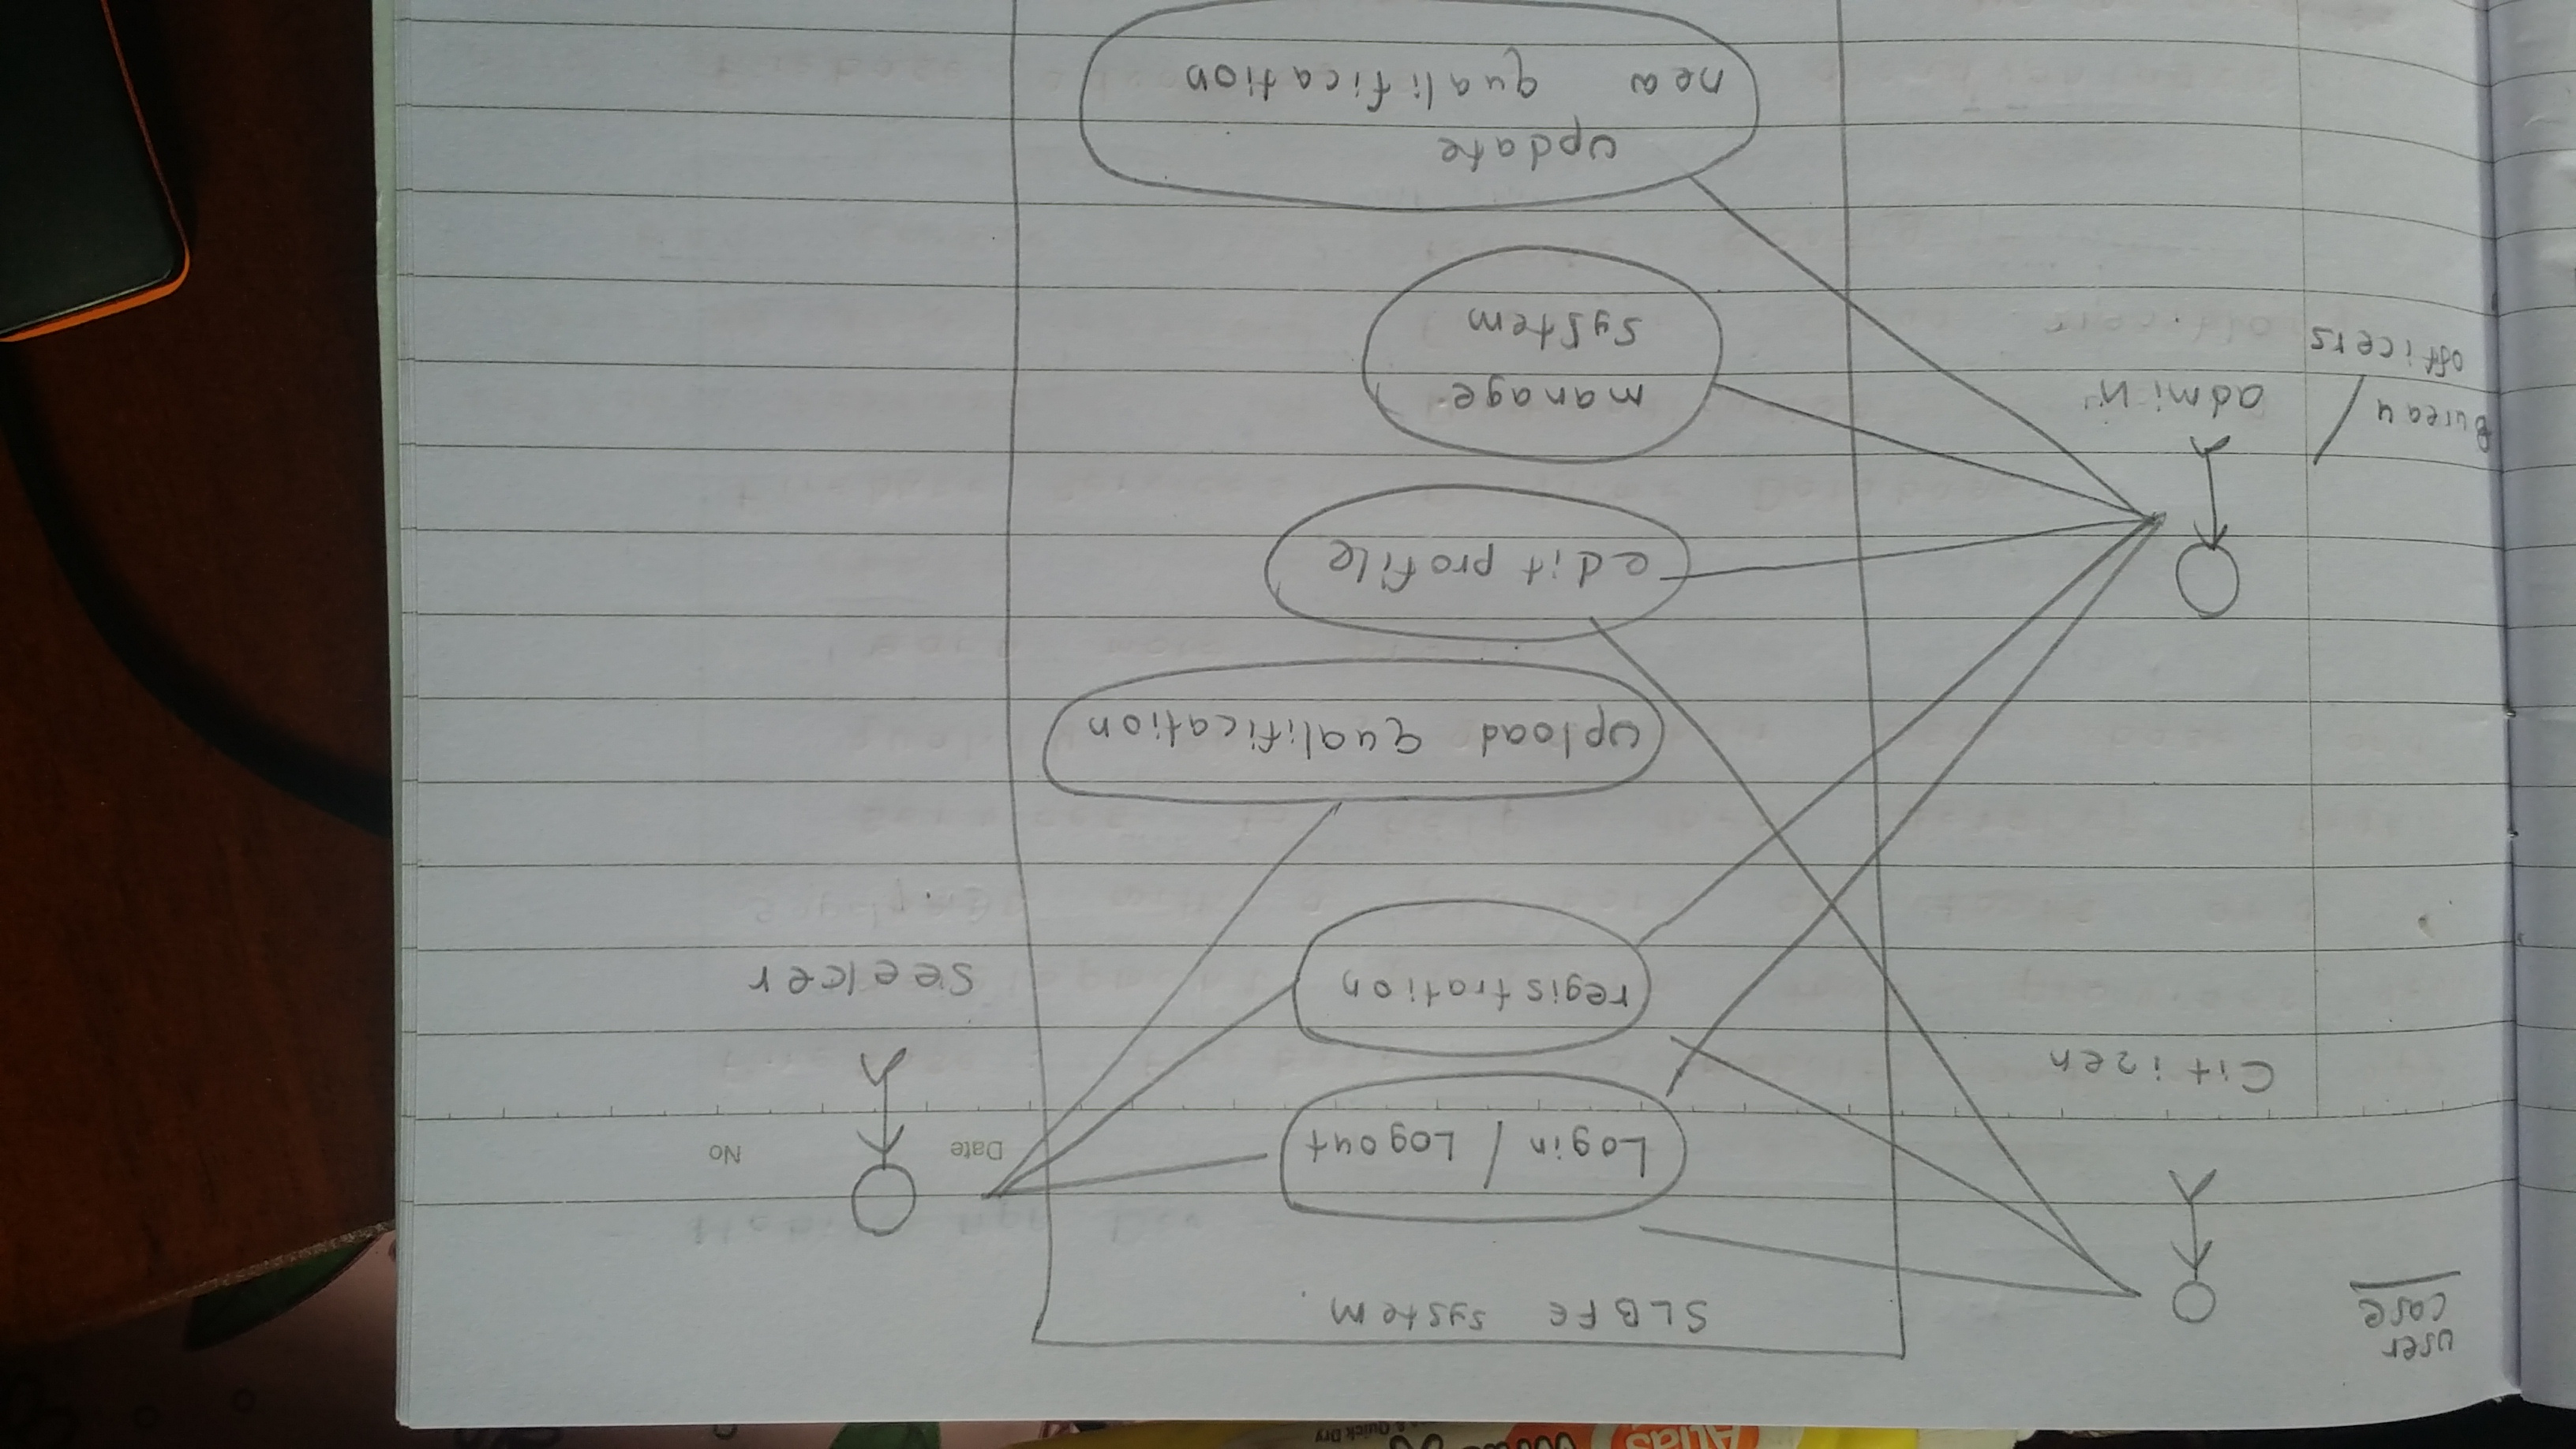 Atlas
& Quick Dry
user
case
SLBFE system.
Login / Logout
Date
No
Citizen
registration
seeker
upload qualification
edit profile
Bureau /
officers
admin
manage
system
update
new qualification